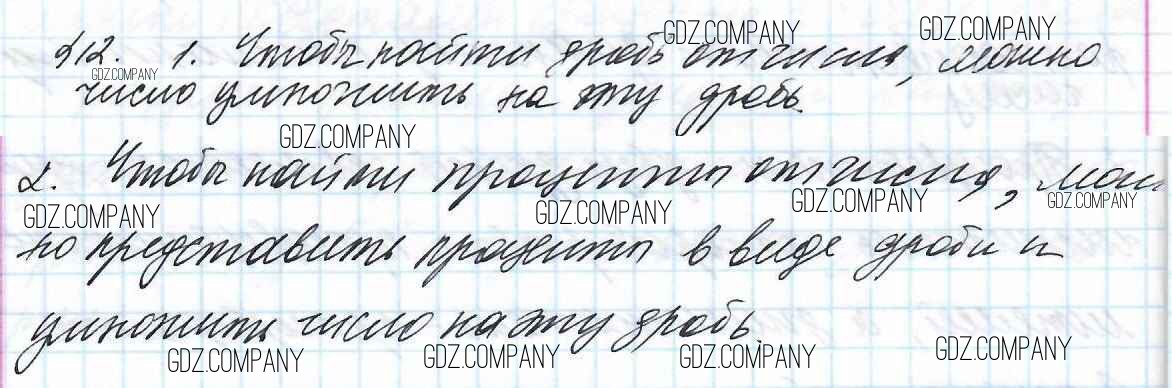 §12. 1. Чтобы найти дробь от числа, можно
число умножить на эту дробь.
2. Чтобы найти проценты от числа, мож
но представить проценты в виде дроби и
умножить число на эту дробь.
GDZ.COMPANY
GDZ.COMPANY
GDZ.COMPANY
GDZ.COMPANY
GDZ.COMPANY
GDZ.COMPANY
GDZ.COMPANY
GDZ.COMPANY
GDZ.COMPANY
GDZ.COMPANY
GDZ.COMPANY
GDZ.COMPANY